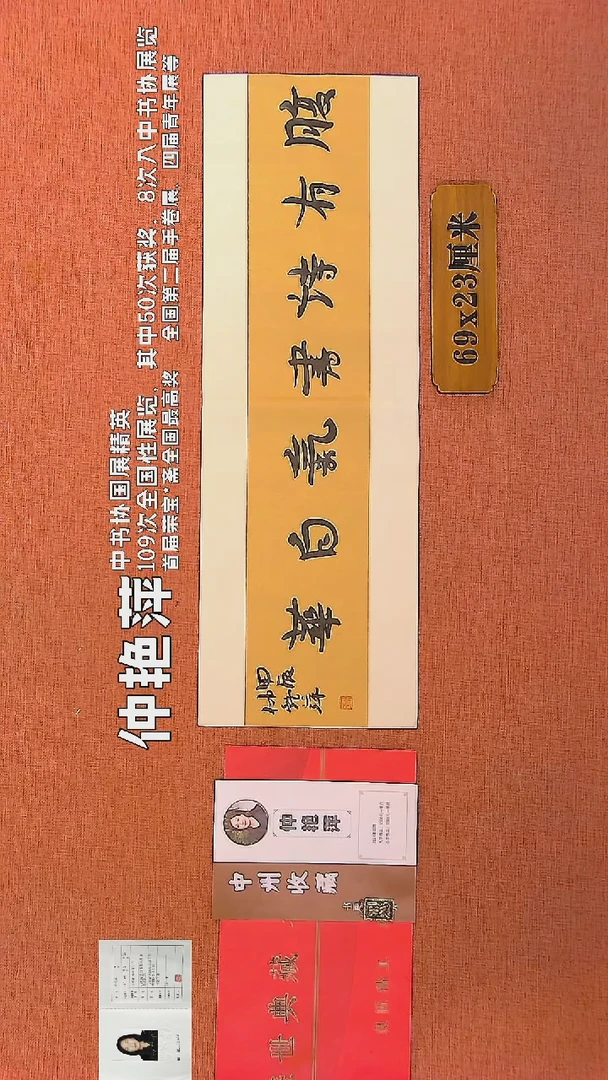 中书协国展精英
仲艳萍
109次全国性展览，其中50次获奖，8次入中书协展览
首届荣宝·斋全国最高奖 全国第二届手卷展，四届青年展等
腹有诗書氣自華
甲辰
69x23厘米
仲艳萍
中州收藏
世典藏